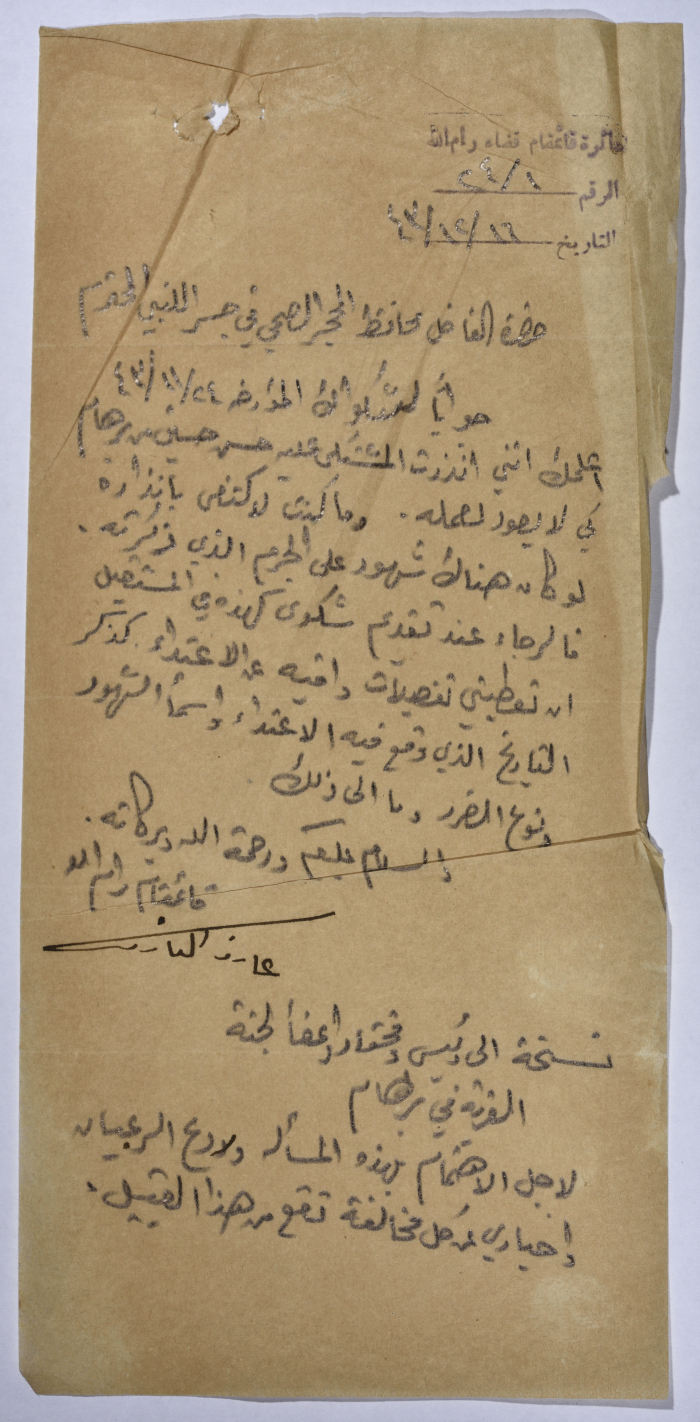 دائرة قائمقام قضاء رام الله
الرقم ٢٤/٨
التاريخ ١٦/١٢/٤٣
حضرة الفاضل محافظ المحجر الصحي في جسر اللنبي المحترم
جواباً لشكواك المؤرخه ٢٤/١١/٤٣
اعلمك انني انذرت المشتكى عليه حسن حسين من برهام
كي لا يعود لعمله. وما كنت لاكتفي بانذاره
لو كان هناك شهود على الجرم الذي ذكرته.
فالرجاء عند تقديم شكوى كهذه في المستقبل
ان تعطيني تفصيلات وافيه عن الاعتداء كذكر
التاريخ الذي وقع فيه الاعتداء واسماء الشهود
ونوع الضرر وما الى ذلك
والسلام عليكم ورحمة الله وبركاته.
قائمقام رام الله
عارف العارف
نسخة الى رئيس ومختار واعضاء لجنة
القرية في برهام
لاجل الاهتمام بهذه المسألة وردع الرعيان
واخباري عن كل مخالفة تقع من هذا القبيل.